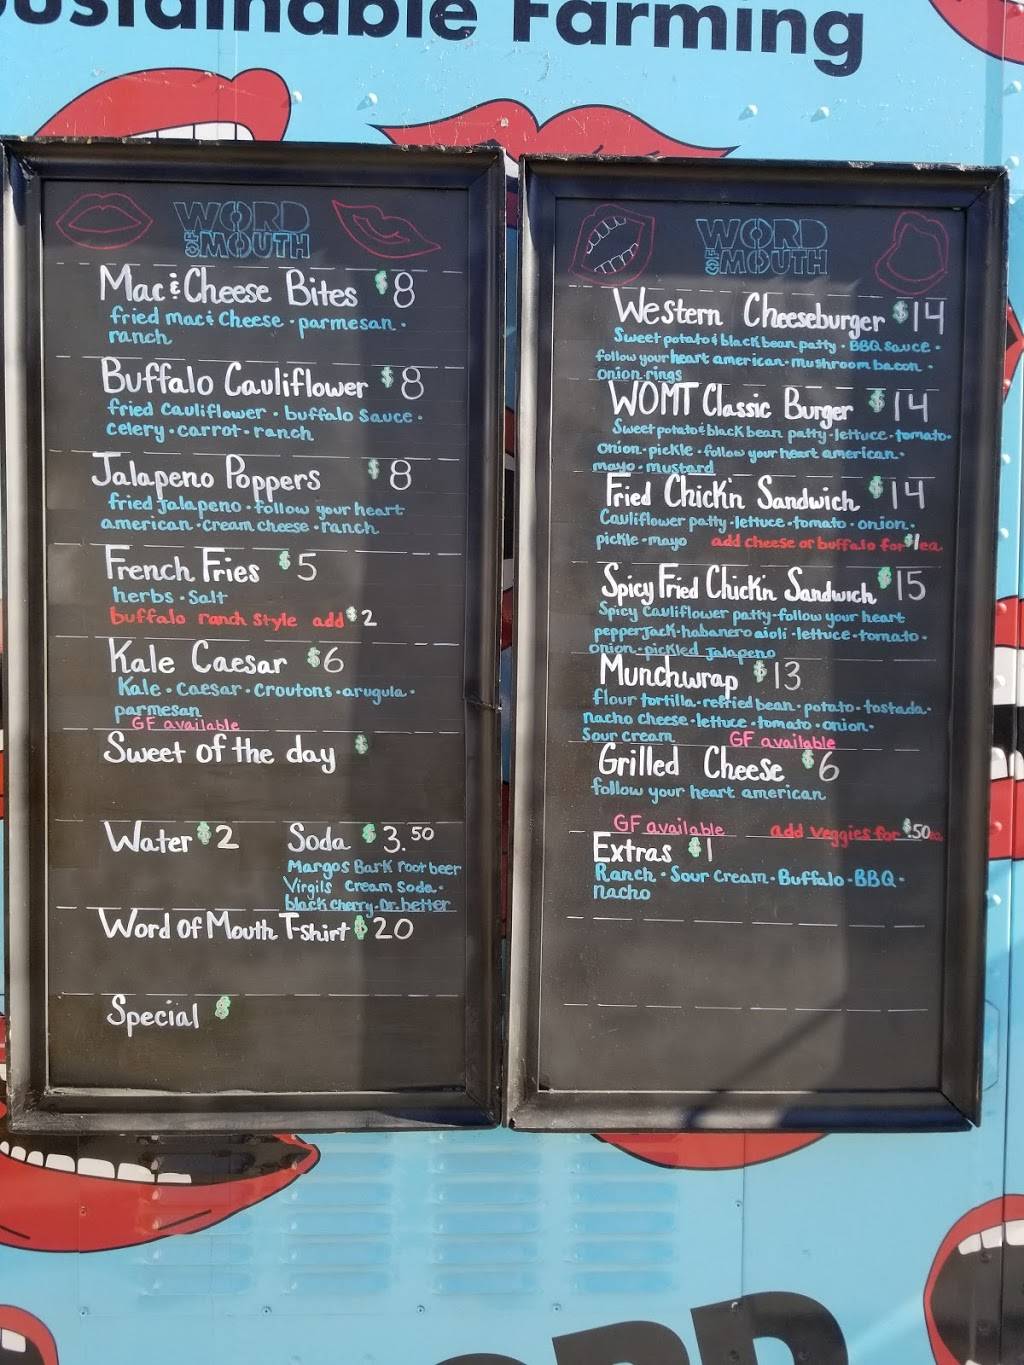 Sustainable Farming
WORD
OF MOUTH
Mac & Cheese Bites $8
fried mac & cheese · parmesan ·
ranch
Buffalo Cauliflower $8
fried cauliflower · buffalo sauce ·
celery · carrot · ranch
Jalapeno Poppers $8
fried jalapeno · follow your heart
american · cream cheese · ranch
French Fries $5
herbs · salt
buffalo ranch style add $2
Kale Caesar $6
Kale · caesar · croutons · arugula ·
parmesan
GF available
Sweet of the day $
Water $2 Soda $3.50
Margos Bark root beer
Virgils cream soda ·
black cherry · Dr. better
Word of Mouth T-shirt $20
Special $
WORD
OF MOUTH
Western Cheeseburger $14
Sweet potato & black bean patty · BBQ sauce ·
follow your heart american · mushroom bacon ·
onion rings
WOMT Classic Burger $14
Sweet potato & black bean patty · lettuce · tomato ·
onion · pickle · follow your heart american ·
mayo · mustard
Fried Chick'n Sandwich $14
Cauliflower patty · lettuce · tomato · onion ·
pickle · mayo add cheese or buffalo for $1 ea
Spicy Fried Chick'n Sandwich $15
Spicy Cauliflower patty · follow your heart
pepperjack · habanero aioli · lettuce · tomato ·
onion · pickled jalapeno
Munchwrap $13
flour tortilla · refried bean · potato · tostada ·
nacho cheese · lettuce · tomato · onion ·
sour cream GF available
Grilled Cheese $6
follow your heart american
GF available add veggies for $.50 ea
Extras $1
Ranch · Sour Cream · Buffalo · BBQ ·
nacho